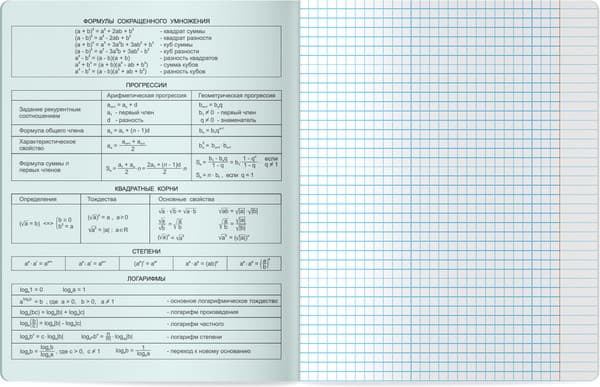 ФОРМУЛЫ СОКРАЩЕННОГО УМНОЖЕНИЯ
(a + b)² = a² + 2ab + b² - квадрат суммы
(a - b)² = a² - 2ab + b² - квадрат разности
(a + b)³ = a³ + 3a²b + 3ab² + b³ - куб суммы
(a - b)³ = a³ - 3a²b + 3ab² - b³ - куб разности
a² - b² = (a - b)(a + b) - разность квадратов
a³ + b³ = (a + b)(a² - ab + b²) - сумма кубов
a³ - b³ = (a - b)(a² + ab + b²) - разность кубов
ПРОГРЕССИИ
Арифметическая прогрессия Геометрическая прогрессия
Задание рекурентным соотношением
aₙ₊₁ = aₙ + d bₙ₊₁ = bₙq
a₁ - первый член b₁ ≠ 0 - первый член
d - разность q ≠ 0 - знаменатель
Формула общего члена aₙ = a₁ + (n - 1)d bₙ = b₁qⁿ⁻¹
Характеристическое свойство
Формула суммы n первых членов
Sₙ = (a₁ + aₙ)/2 · n = (2a₁ + (n - 1)d)/2 · n
если q ≠ 1
Sₙ = n · b₁ , если q = 1
КВАДРАТНЫЕ КОРНИ
Определения Тождества Основные свойства
(√a = b) <=> { b ≥ 0
b² = a
(√a)² = a , a ≥ 0
√a² = |a| ; a∈R
√a · √b = √a · b √ab = √|a| · √|b|
√a/√b = √(a/b) √(a/b) = √|a|/√|b|
СТЕПЕНИ
ЛОГАРИФМЫ
logₐ1 = 0 logₐa = 1
, где a > 0, b > 0, a ≠ 1 - основное логарифмическое тождество
logₐ(bc) = logₐ|b| + logₐ|c| - логарифм произведения
logₐ(b/c) = logₐ|b| - logₐ|c| - логарифм частного
- логарифм степени
, где c > 0, c ≠ 1 - переход к новому основанию